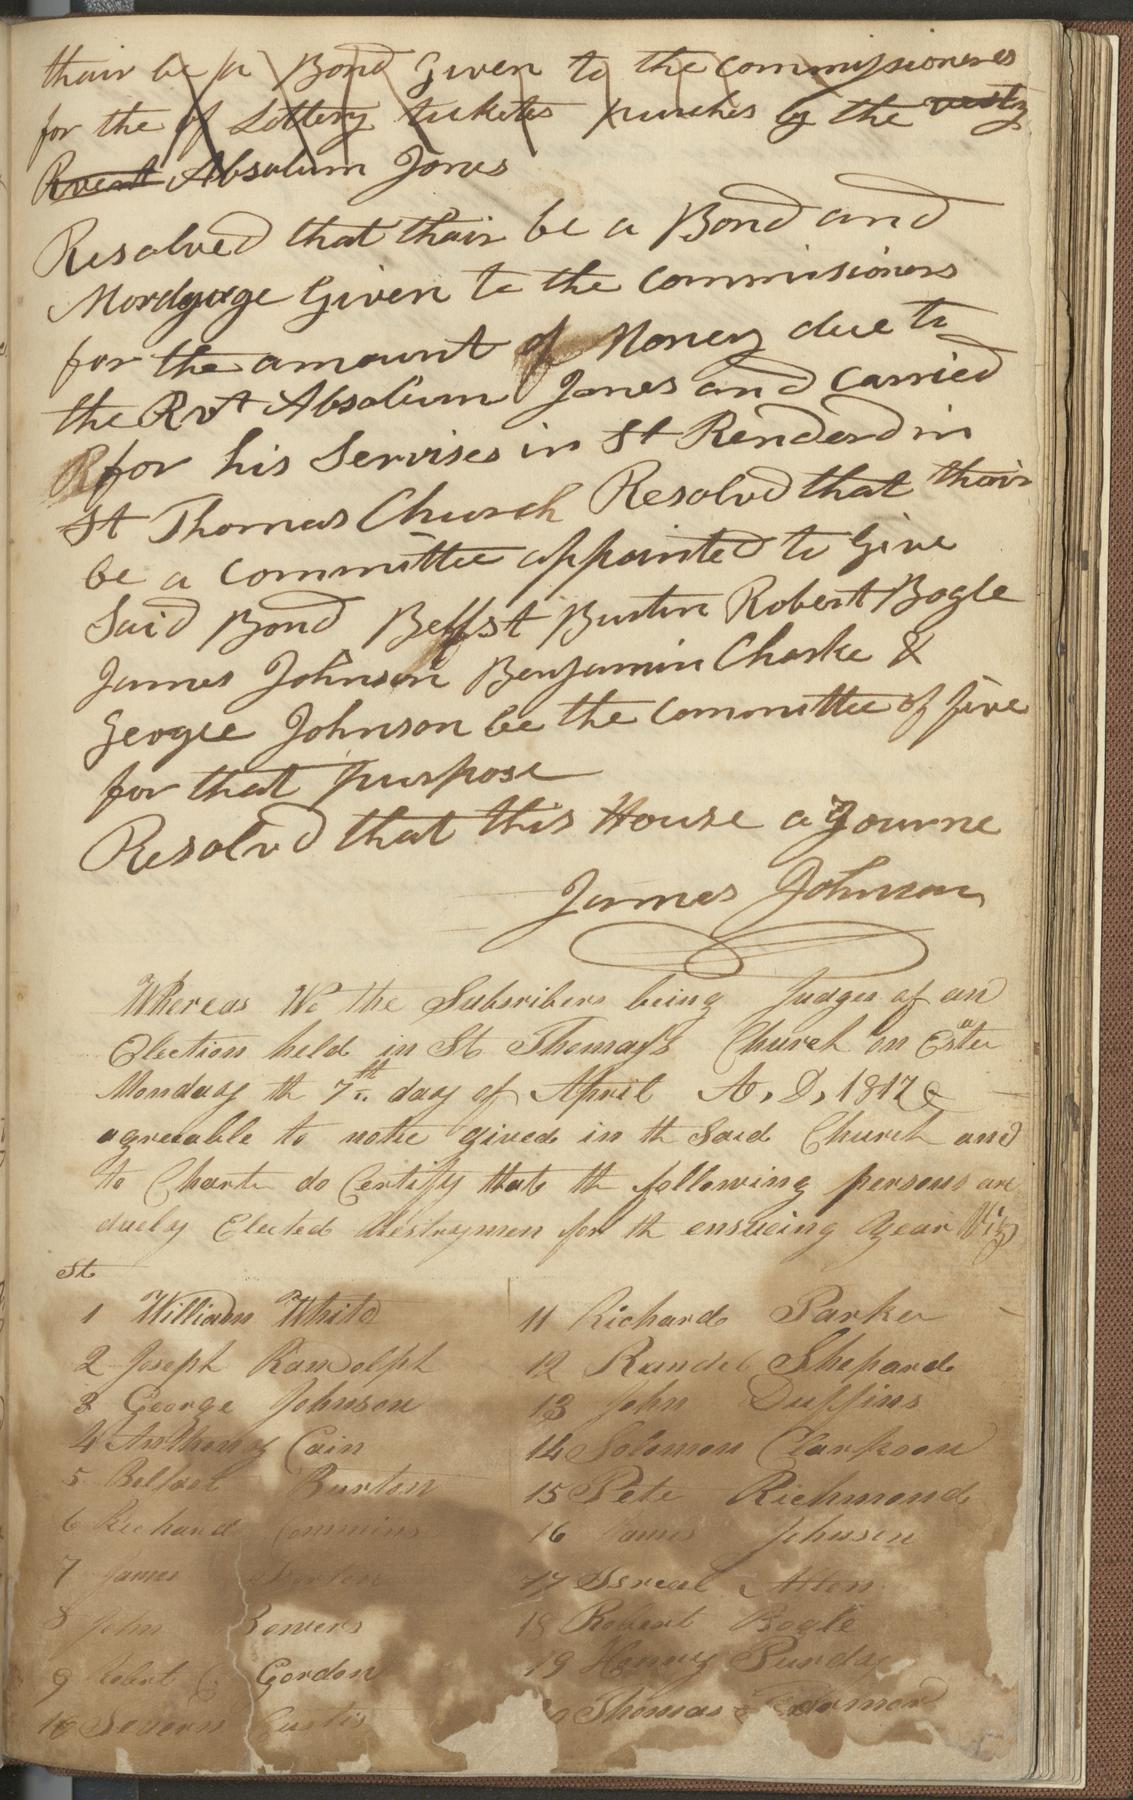 thair be a Bond Given to the Commissioneres
for the of Lottery ticketes purches by the vestry
Revent Absalum Jones
Resolved that thair be a Bond and
Mordgage Given to the Commisioners
for the amount of Money due to
the Rvt Absolum Jones and Carried
for his Servises in St Renderd in
St Thomas Church Resolvd that thair
be a Committee appointed to Give
Said Bond Belfst Burtin Robert Bogle
James Johnson Benjamin Charke &
Geogee Johnson be the Committee of five
for that purpose
Resolvd that this House a Journe
James Johnson
Whereas We the Subsribers being Judges of an
Election held in St Thomas's Church on Easter
Monday th 7th day of April A, D, 1817
agreeable to notie gived in th Said Church and
to Charte do Certify that th following persons are
duely Elected Vestrymen for th ensueing Year Viz
St
1 William White
2 Joseph Randolph
3 George Johnson
4 Anthony Cain
5 Belfast Burton
6 Richard Commins
7 James
8 John Bowers
9 Robert C. Gordon
10 Severn Curtis
11 Richard Parker
12 Randel Shepard
13 John Duffins
14 Solomon Clarkson
15 Pete Richmond
16 James Johnson
17 Isreal Allen
18 Robert Bogle
19 Henry Purda
Thomas